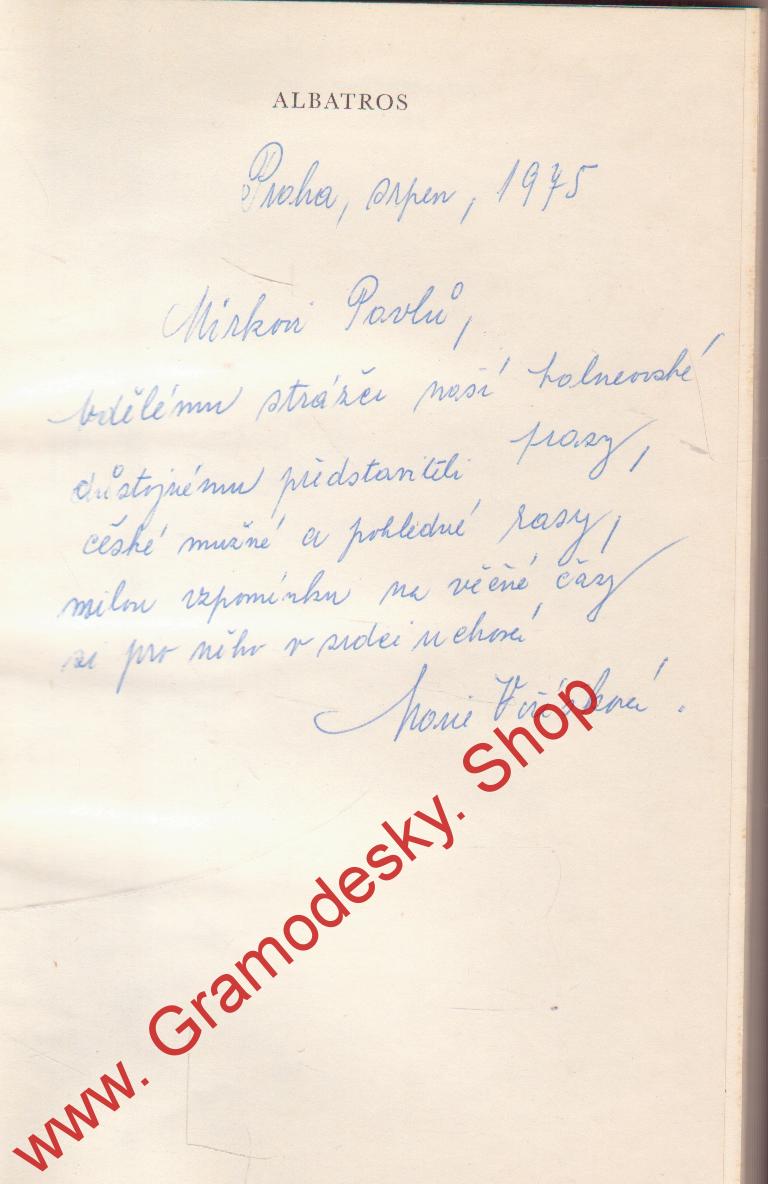 ALBATROS
Praha, srpen, 1975
Mirkovi Pavlů,
bdělému strážci naší
prasy,
důstojnému představiteli
české mužné a pohledné rasy,
milou vzpomínku na věčné časy
si pro něho v srdci uchová
Marie
www. Gramodesky. Shop